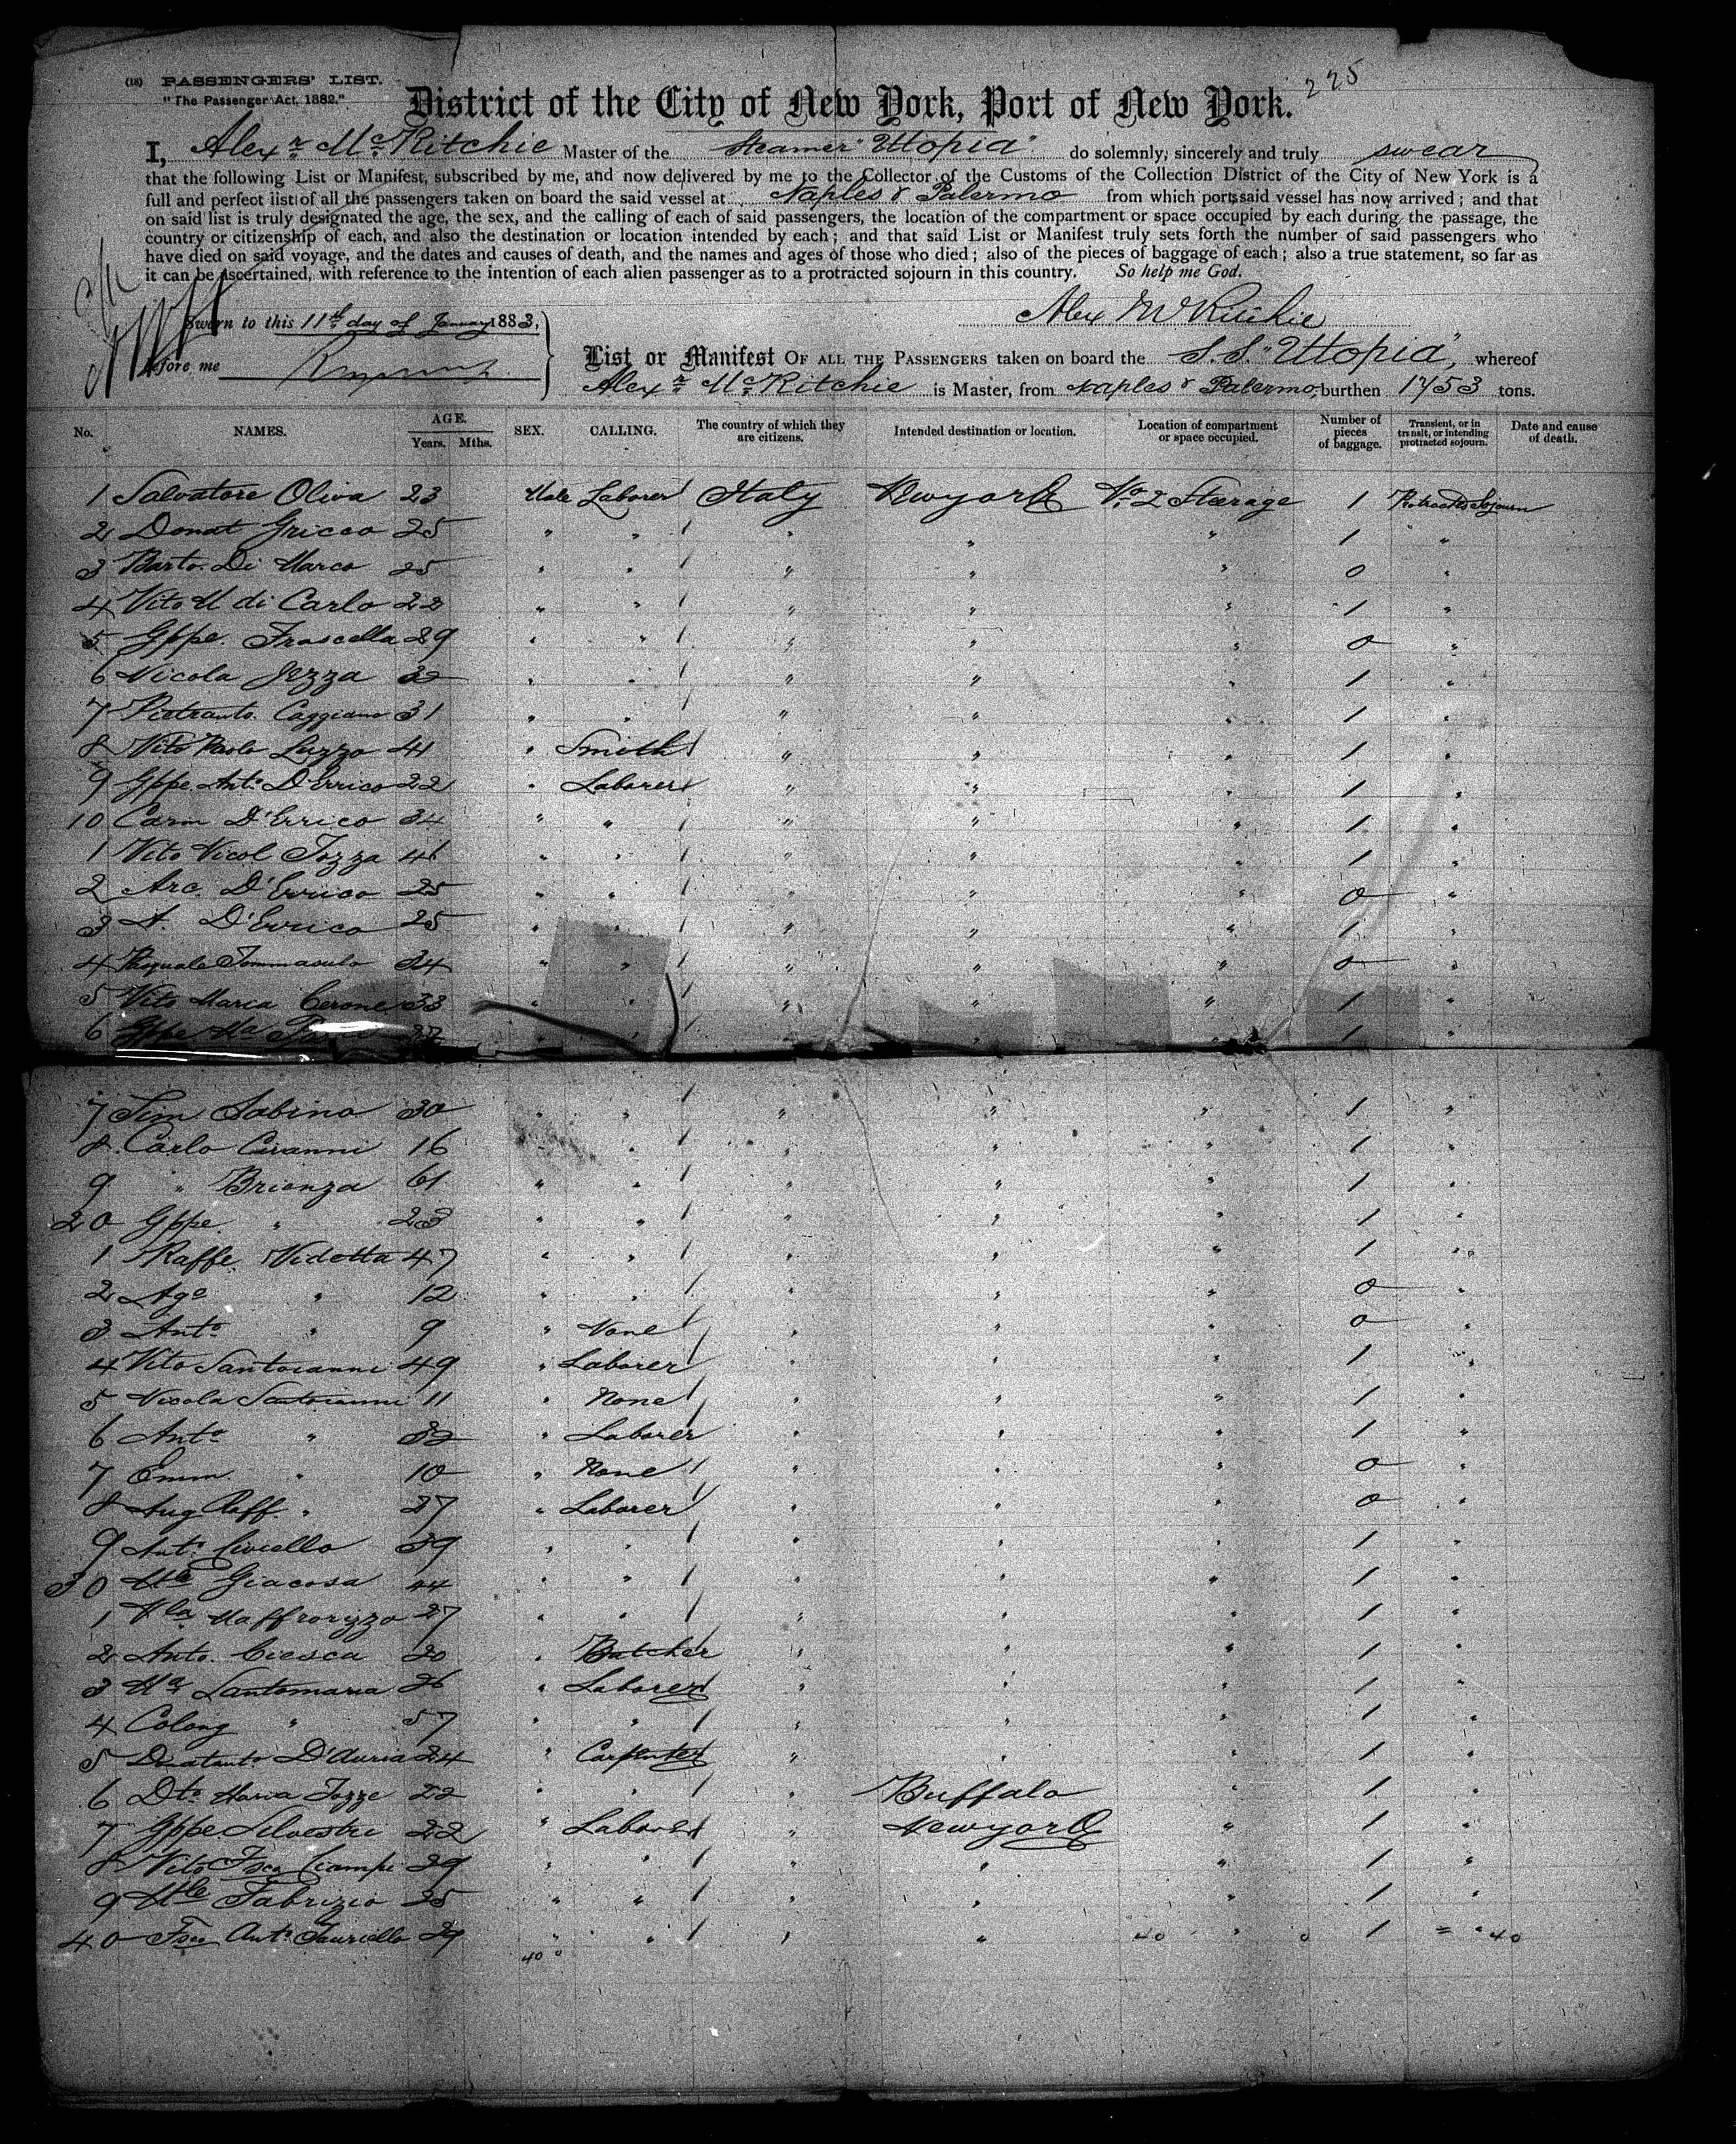 225
(18) PASSENGERS' LIST.
"The Passenger Act, 1882."
District of the City of New York, Port of New York.
I, Alexr. McRitchie Master of the Steamer "Utopia" do solemnly, sincerely and truly swear
that the following List or Manifest, subscribed by me, and now delivered by me to the Collector of the Customs of the Collection District of the City of New York is a
full and perfect list of all the passengers taken on board the said vessel at Naples & Palermo from which ports said vessel has now arrived; and that
on said list is truly designated the age, the sex, and the calling of each of said passengers, the location of the compartment or space occupied by each during the passage, the
country or citizenship of each, and also the destination or location intended by each; and that said List or Manifest truly sets forth the number of said passengers who
have died on said voyage, and the dates and causes of death, and the names and ages of those who died; also of the pieces of baggage of each; also a true statement, so far as
it can be ascertained, with reference to the intention of each alien passenger as to a protracted sojourn in this country. So help me God.
Alex McRitchie
Sworn to this 11th day of January 1883,
before me
List or Manifest OF ALL THE PASSENGERS taken on board the S.S. "Utopia", whereof
Alexr. McRitchie is Master, from Naples & Palermo, burthen 1753 tons.
No. NAMES. AGE. Years. Mths. SEX. CALLING. The country of which they are citizens. Intended destination or location. Location of compartment or space occupied. Number of pieces of baggage. Transient, or in transit, or intending protracted sojourn. Date and cause of death.
1 Salvatore Oliva 23 Male Laborer Italy Newyork No. 2 Steerage 1 Protracted Sojourn
2 Donat Gricco 25 " " " " " 1 "
3 Barto. Di Marco 25 " " " " " 0 "
4 Vito M di Carlo 22 " " " " " 1 "
5 Gppe. Frascella 29 " " " " " 0 "
6 Nicola Jezza 32 " " " " " 1 "
7 Pietranto. Caggiano 31 " " " " " 1 "
8 Vito Paolo Luzzo 41 " Smith " " " 1 "
9 Gppe. Anto. D'Errico 22 " Laborer " " " 1 "
10 Carm D'Errico 34 " " " " " 1 "
1 Vito Nicol Tozza 41 " " " " " 1 "
2 Arc. D'Errico 25 " " " " " 0 "
3 A. D'Errico 25 " " " " " 1 "
4 Pasquale Tommasulo 34 " " " " " 0 "
5 Vito Maria Cerone 33 " " " " " 1 "
6 Gppe Ma " " " " " 1 "
7 Tim Sabino 30 " " " " " 1 "
8 Carlo Ciranni 16 " " " " " 1 "
9 " Brienza 61 " " " " " 1 "
20 Gppe. " 23 " " " " " 1 "
1 Raffe. Nidotta 47 " " " " " 1 "
2 Ago " 12 " " " " " 0 "
3 Anto " 9 " None " " " 0 "
4 Vito Santoianni 49 " Laborer " " " 1 "
5 Nicola Santoianni 11 " None " " " 1 "
6 Anto " 32 " Laborer " " " 1 "
7 Emm. " 10 " None " " " 0 "
8 Aug Raff. " 27 " Laborer " " " 0 "
9 Anto. Civiello 39 " " " " " 1 "
30 Mle Giacosa 44 " " " " " 1 "
1 Nla Maffrorizzo 27 " " " " " 1 "
2 Anto. Ciesca 20 " Butcher " " " 1 "
3 Ma Santomaria 26 " Laborer " " " 1 "
4 Colang " 57 " " " " " 1 "
5 Donatanto D'Auria 24 " Carpenter " " " 1 "
6 Dto. Maria Tozze 22 " " " Buffalo " 1 "
7 Gppe. Silvestri 22 " Laborer " Newyork " 1 "
8 Vito Fsco Ciampi 29 " " " " " 1 "
9 Mle Fabrizio 25 " " " " " 1 "
40 Fsco Anto. Tauriello 29 " " " " 40 " 0 1 = " 40
40 0